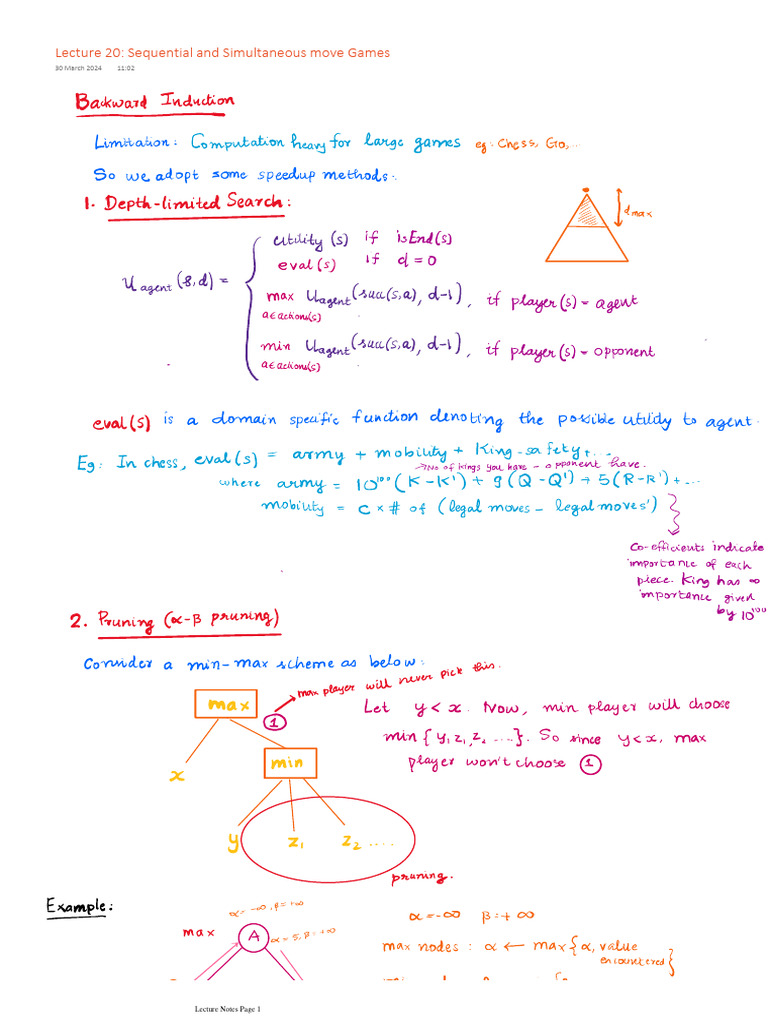 Lecture 20: Sequential and Simultaneous move Games
30 March 2024 11:02
Backward Induction
Limitation: Computation heavy for large games eg: Chess, Go,...
So we adopt some speedup methods:
1. Depth-limited Search:
dmax
Uagent(s,d) =
Utility(s) if isEnd(s)
eval(s) if d=0
max Uagent(succ(s,a), d-1), if player(s) = agent
a∈actions(s)
min Uagent(succ(s,a), d-1), if player(s) = opponent
a∈actions(s)
eval(s) is a domain specific function denoting the possible utility to agent.
Eg: In chess, eval(s) = army + mobility + King-safety+...
→No of kings you have - opponent have.
where army = 10^100(K-K') + 9(Q-Q') + 5(R-R')+...
mobility = C × # of (legal moves - legal moves')
Co-efficients indicate
importance of each
piece. King has ∞
importance given
by 10^100
2. Pruning (α-β pruning)
Consider a min-max scheme as below:
max player will never pick this.
max
1
Let y < x. Now, min player will choose
min{y,z1,z2 ....}. So since y<x, max
player won't choose 1
min
x
y z1 z2 ....
pruning.
Example:
α=-∞, β=+∞
α=-∞ β=+∞
max A α=5, β=+∞
max nodes: α ← max{α, value
encountered}
Lecture Notes Page 1